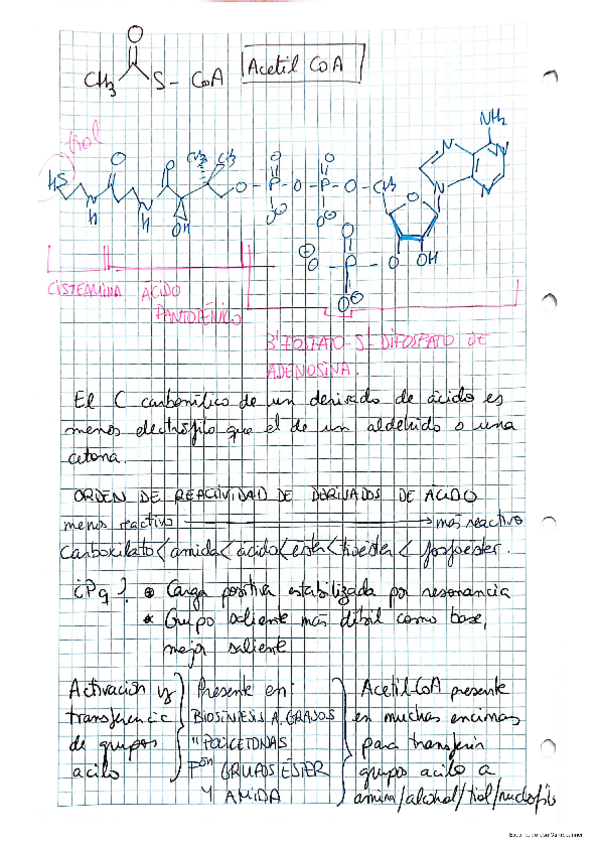 O
CH3 S- CoA Acetil CoA
tiol
NH2
HS N H O N H O OH CH3 CH3 O - P - O - P - O - CH2 O N N N N
O - P - O O OH
CISTEAMINA ACIDO
PANTOTÉNICO
3'FOSFATO-5'-DIFOSFATO DE
ADENOSINA.
El C carbonílico de un derivado de ácido es
menos electrófilo que el de un aldehido o una
cetona.
ORDEN DE REACTIVIDAD DE DERIVADOS DE ÁCIDO
menos reactivo → más reactivo
Carboxilato < amida < ácido < éster < tioéster < fosfoéster.
¿Pq? Carga positiva estabilizada por resonancia
* Grupo saliente más débil como base,
mejor saliente
Activación y Presente en: Acetil-CoA presente
transferencia BIOSÍNTESIS A. GRASOS en muchas encimas
de grupos " POLICETONAS para transferir
acilo Fon GRUPOS ÉSTER grupos acilo a
Y AMIDA amina/alcohol/tiol/nucleófilo